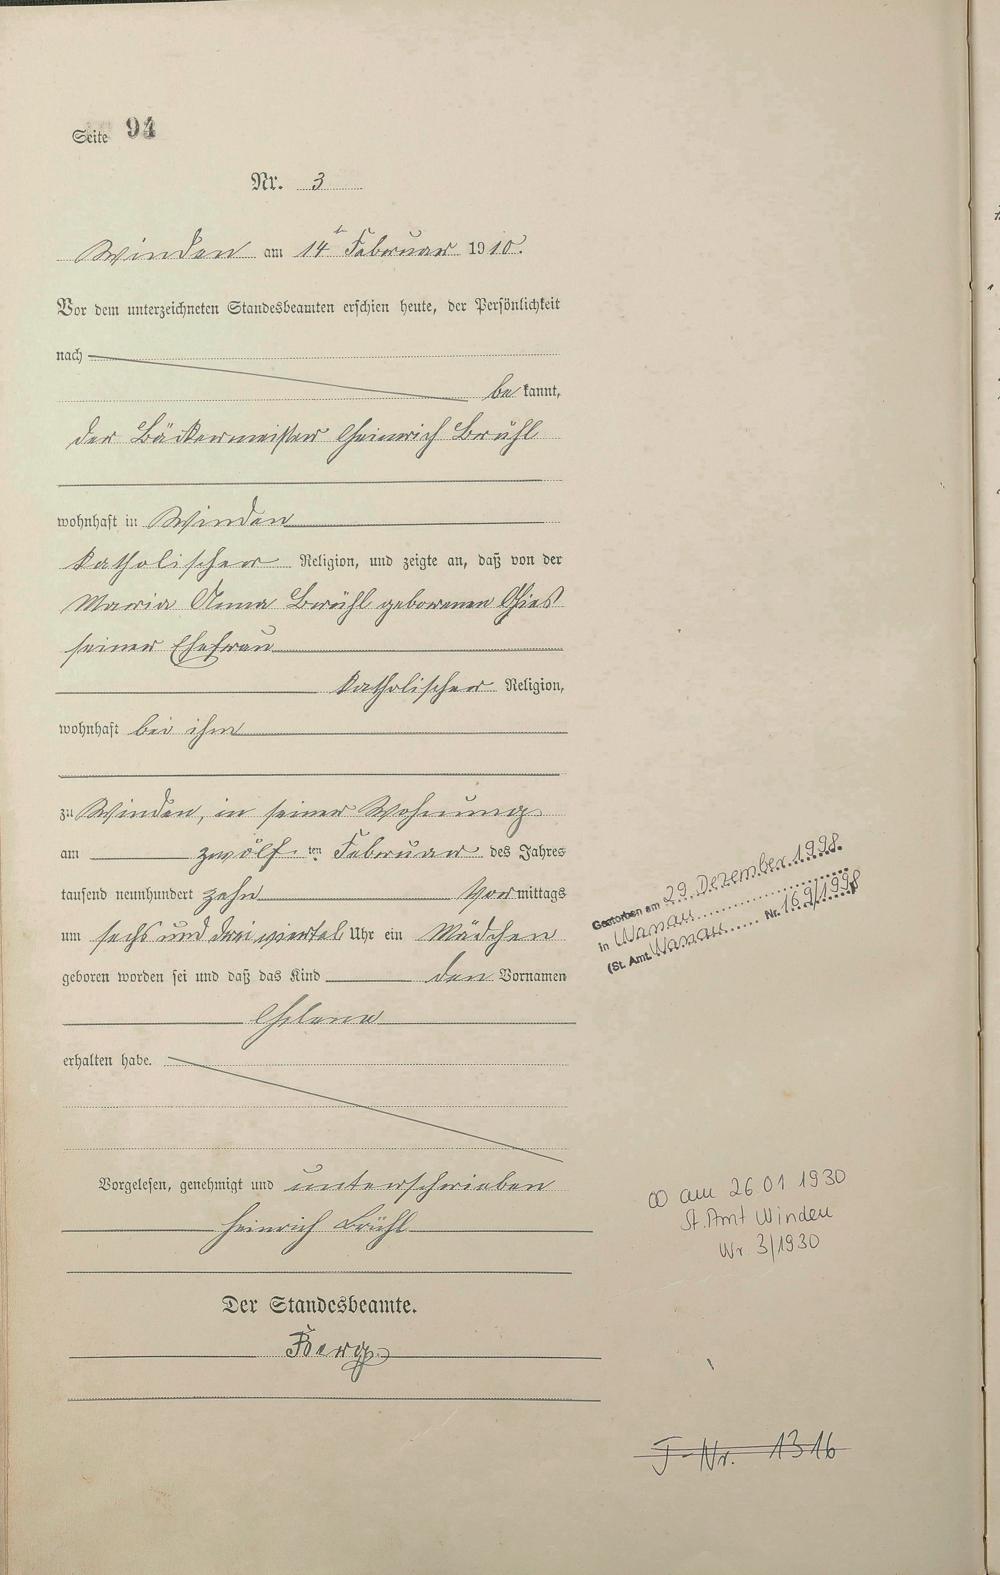 Seite 94
Nr. 3
Winden am 14t Februar 1910.
Vor dem unterzeichneten Standesbeamten erschien heute, der Persönlichkeit
nach
be kannt,
der Bäckermeister Heinrich Brühl
wohnhaft in Winden
katholischer Religion, und zeigte an, daß von der
Maria Anna Brühl geborenen Gies
seiner Ehefrau
katholischer Religion,
wohnhaft bei ihm
zu Winden, in seiner Wohnung
am zwölf ten Februar des Jahres
tausend neunhundert zehn Vormittags
um sechs und drei viertel Uhr ein Mädchen
geboren worden sei und daß das Kind den Vornamen
Helena
erhalten habe.
Vorgelesen, genehmigt und unterschrieben
Heinrich Brühl
Der Standesbeamte.
Berg
Gestorben am 29. Dezember 1998.
in Nassau
(St. Amt. Nassau Nr. 169/1998
∞ am 26 01 1930
St. Amt Winden
Nr 3/1930
J-Nr. 1316